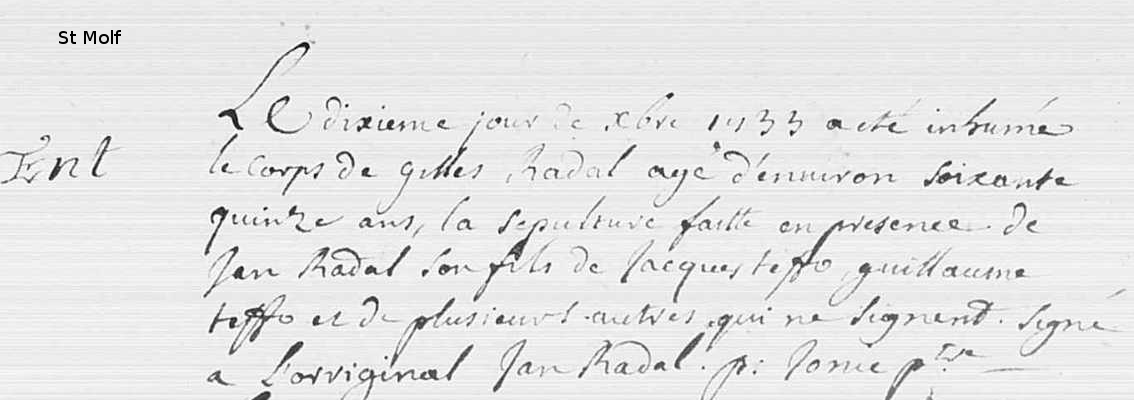 St Molf
Le dixieme jour de xbre 1733 a eté inhumé
Ent
le corps de gilles Radal agé d'enuiron soixante
quinze ans, la sepulture faitte en presence de
Jan Radal son fils de Jacques teffo, guillaume
teffo et de plusieurs autres qui ne signent. signé
a L'orriginal Jan Radal. p: